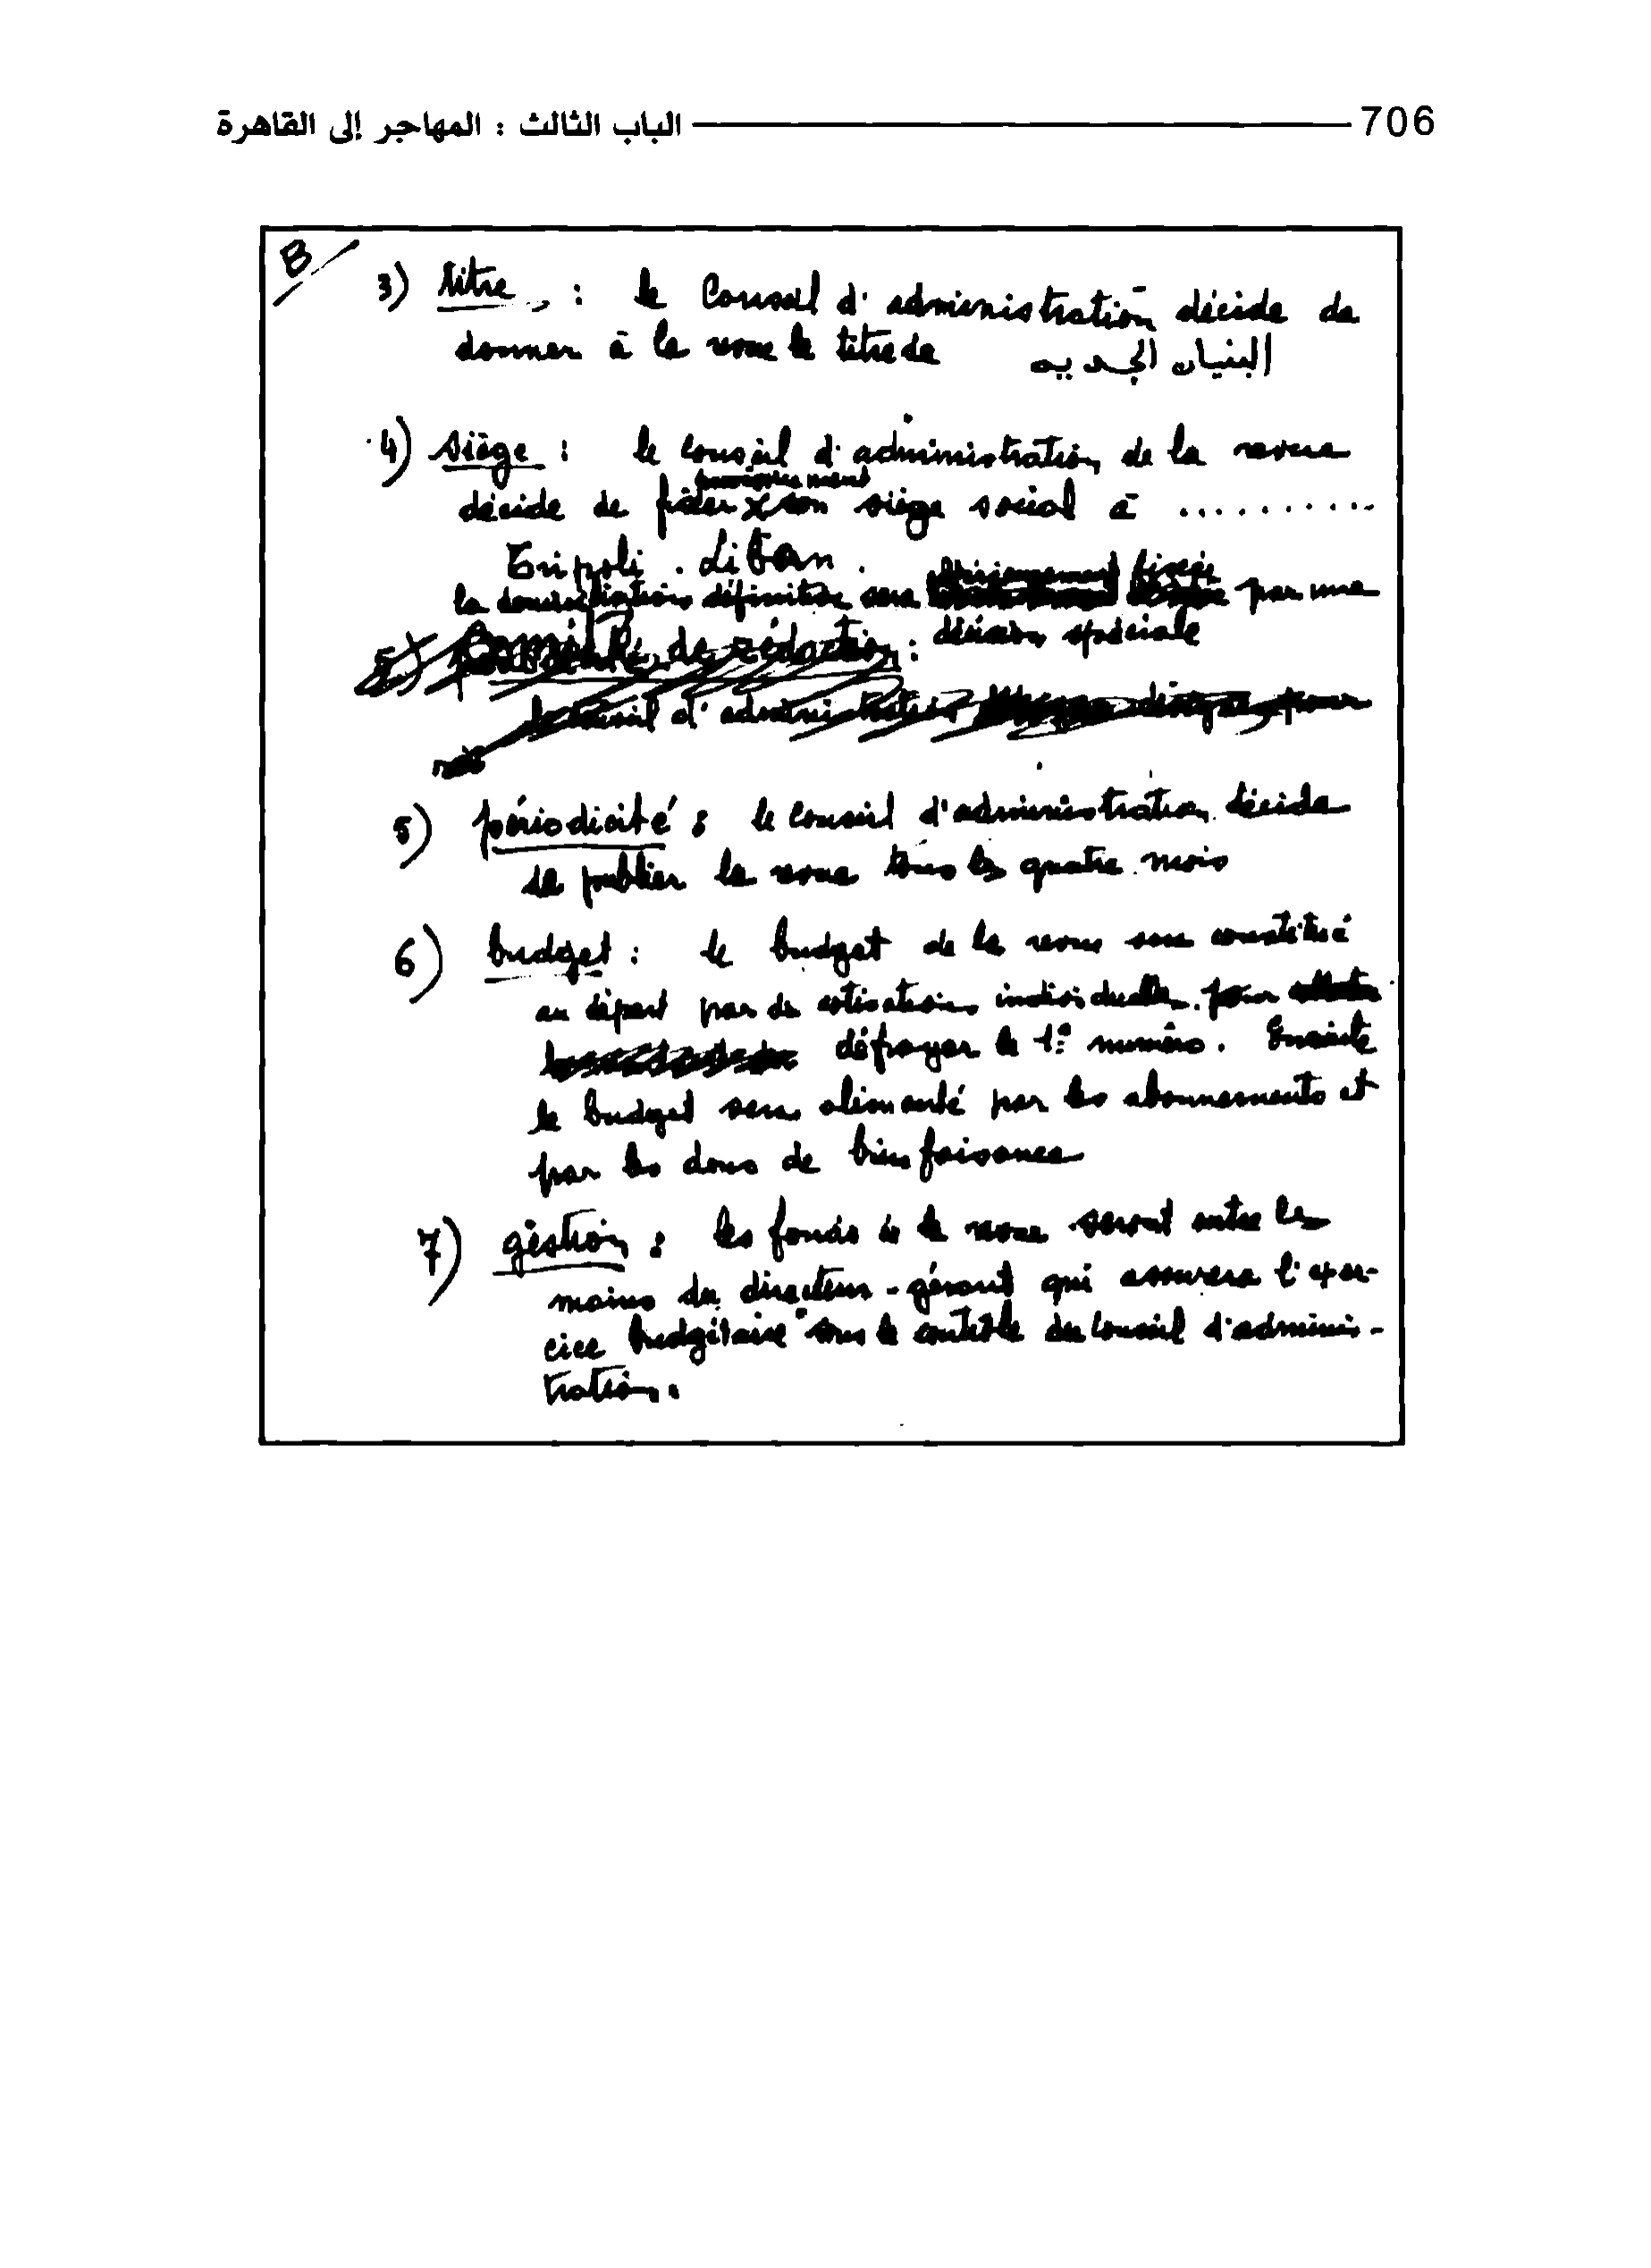 706 الباب الثالث : المهاجر إلى القاهرة
B/
3) titre : le Conseil d'administration décide de
donner à la revue le titre de البنيان الجديد
4) siège : le conseil d'administration de la revue
provisoirement
décide de fixer son siège social à ..........
Tripoli . Liban .
la domiciliation définitive sera fixée par une
5) Comité de rédaction : décision spéciale
le conseil d'administration désigne pour
5) périodicité : le conseil d'administration décide
de publier la revue tous les quatre mois
6) budget : le budget de la revue sera constitué
au départ par des cotisations individuelles pour
défrayer le 1er numéro. Ensuite
le budget sera alimenté par les abonnements et
par les dons de bienfaisance
7) géstion : les fonds de la revue seront entre les
mains du directeur-gérant qui assurera l'exer-
cice budgétaire sous le contrôle du conseil d'adminis-
tration.